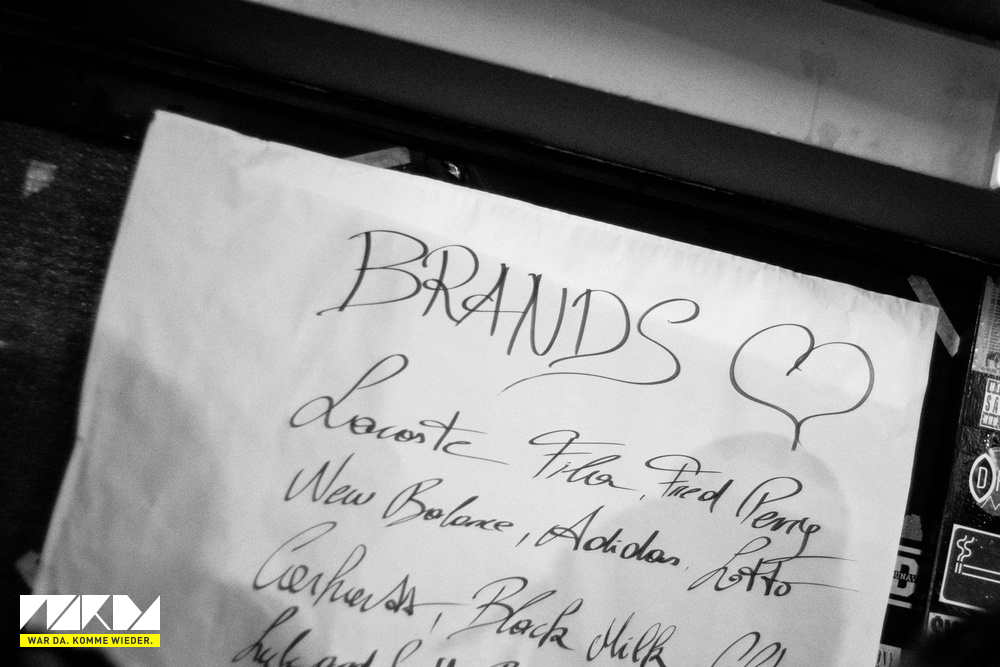 BRANDS
Lacoste Fila, Fred Perry
New Balance, Adidas, Lotto
Carhartt, Black Milk
WAR DA. KOMME WIEDER.